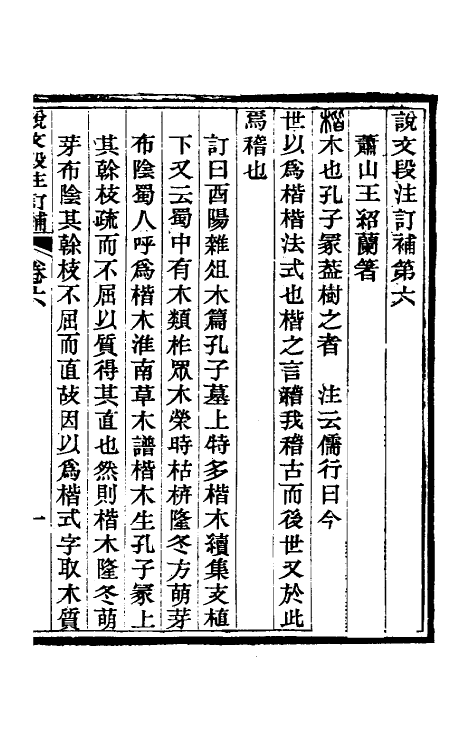 說文段注訂補第六
蕭山王紹蘭箸
楷木也孔子冢葢樹之者　注云儒行曰今
世以爲楷楷法式也楷之言稽我稽古而後世又於此
爲稽也
訂曰酉陽雜俎木篇孔子墓上特多楷木續集支植
下又云蜀中有木類柞眾木榮時枯枿隆冬方萌芽
布陰蜀人呼爲楷木淮南草木譜楷木生孔子冢上
其榦枝疏而不屈以質得其直也然則楷木隆冬萌
芽布陰其榦枝不屈而直故因以爲楷式字取木質
說文段注訂補
卷六
一